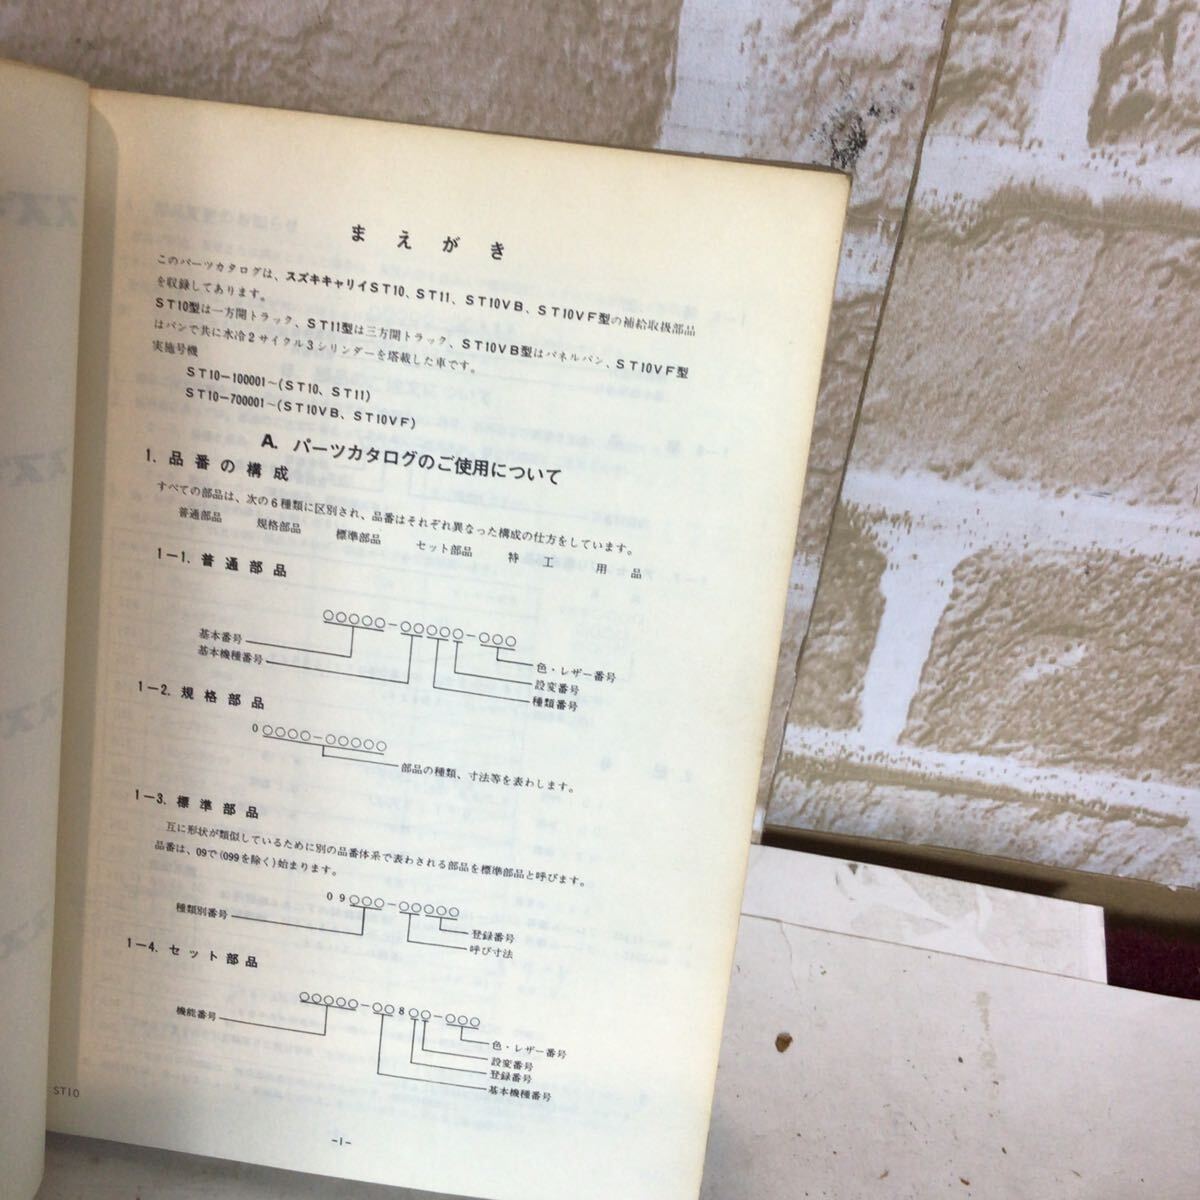 まえがき
このパーツカタログは、スズキキャリイST10、ST11、ST10VB、ST10VF型の補給取扱部品
を収録してあります。
ST10型は一方開トラック、ST11型は三方開トラック、ST10VB型はパネルバン、ST10VF型
はバンで共に水冷2サイクル3シリンダーを塔載した車です。
実施号機
ST10-100001~(ST10、ST11)
ST10-700001~(ST10VB、ST10VF)
A. パーツカタログのご使用について
1. 品番の構成
すべての部品は、次の6種類に区別され、品番はそれぞれ異なった構成の仕方をしています。
普通部品 規格部品 標準部品 セット部品 特工用品
1-1. 普通部品
○○○○○-○○○○○-○○○
基本番号
基本機種番号
色・レザー番号
設変番号
種類番号
1-2. 規格部品
0○○○○-○○○○○
部品の種類、寸法等を表わします。
1-3. 標準部品
互に形状が類似しているために別の品番体系で表わされる部品を標準部品と呼びます。
品番は、09で(099を除く)始まります。
09○○○-○○○○○
種類別番号
登録番号
呼び寸法
1-4. セット部品
○○○○○-○○8○○-○○○
機能番号
色・レザー番号
設変番号
登録番号
基本機種番号
ST10
-1-